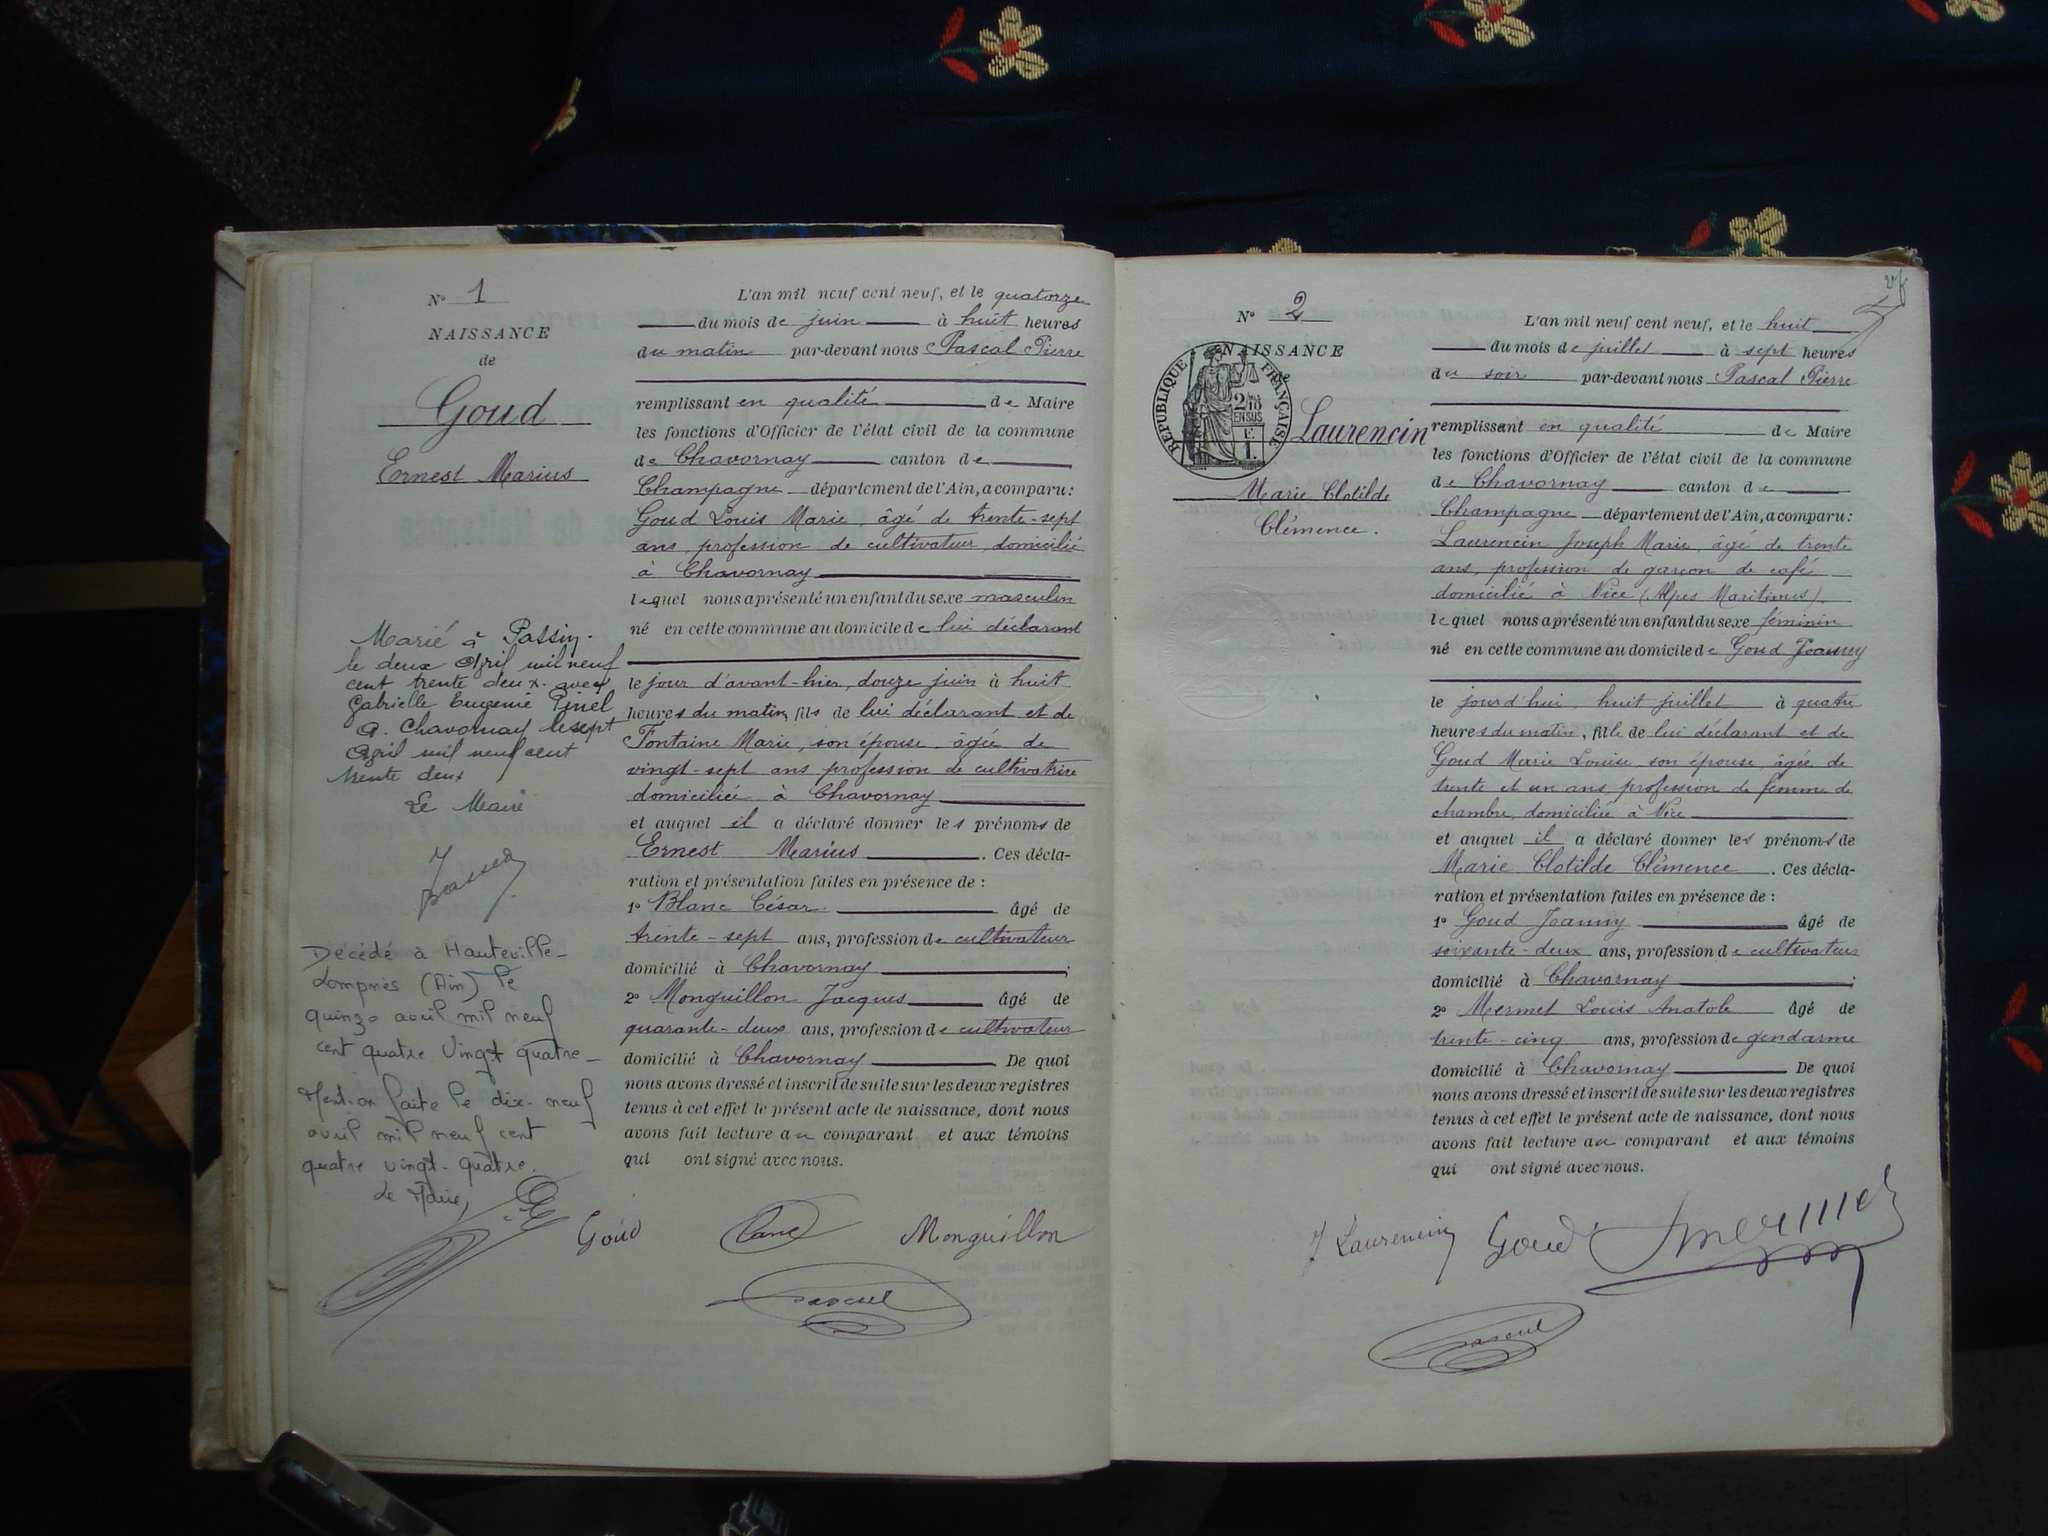 N° 1
NAISSANCE
de
Goud
Ernest Marius
Marié à Passin
le deux Avril mil neuf
cent trente deux avec
Gabrielle Eugénie Pinel
A Chavornay le sept
Avril mil neuf cent
trente deux
Le Maire
Décédé à Hauteville-
Lompnes (Ain) le
quinze avril mil neuf
cent quatre vingt quatre_
Mention faite le dix-neuf
avril mil neuf cent
quatre vingt-quatre.
Le Maire,
L'an mil neuf cent neuf, et le quatorze
du mois de juin à huit heures
du matin par-devant nous Pascal Pierre
remplissant en qualité de Maire
les fonctions d'Officier de l'état civil de la commune
de Chavornay canton de
Champagne département de l'Ain, a comparu:
Goud Louis Marie, âgé de trente-sept
ans, profession de cultivateur, domicilié
à Chavornay
lequel nous a présenté un enfant du sexe masculin
né en cette commune au domicile de lui déclarant
le jour d'avant-hier, douze juin à huit
heures du matin, fils de lui déclarant et de
Fontaine Marie, son épouse, âgée de
vingt-sept ans profession de cultivatrice
domiciliée à Chavornay
et auquel il a déclaré donner les prénoms de
Ernest Marius . Ces décla-
ration et présentation faites en présence de :
1° Blanc César âgé de
trente-sept ans, profession de cultivateur
domicilié à Chavornay ;
2° Monguillon Jacques âgé de
quarante-deux ans, profession de cultivateur
domicilié à Chavornay De quoi
nous avons dressé et inscrit de suite sur les deux registres
tenus à cet effet le présent acte de naissance, dont nous
avons fait lecture au comparant et aux témoins
qui ont signé avec nous.
Goud Blanc Monguillon
Pascal
N° 2
NAISSANCE
de
RÉPUBLIQUE FRANÇAISE
2/10
EN SUS
F.
1.
Laurencin
Marie Clotilde
Clémence.
L'an mil neuf cent neuf, et le huit
du mois de juillet à sept heures
du soir par-devant nous Pascal Pierre
remplissant en qualité de Maire
les fonctions d'Officier de l'état civil de la commune
de Chavornay canton de
Champagne département de l'Ain, a comparu:
Laurencin Joseph Marie, âgé de trente
ans, profession de garçon de café
domicilié à Nice (Alpes Maritimes).
lequel nous a présenté un enfant du sexe féminin
né en cette commune au domicile de Goud Joanny
le jourd'hui, huit juillet à quatre
heures du matin, fille de lui déclarant et de
Goud Marie Louise son épouse, âgée de
trente et un ans profession de femme de
chambre, domiciliée à Nice
et auquel il a déclaré donner les prénoms de
Marie Clotilde Clémence . Ces décla-
ration et présentation faites en présence de :
1° Goud Joanny âgé de
soixante-deux ans, profession de cultivateur
domicilié à Chavornay ;
2° Mermet Louis Anatole âgé de
trente-cinq ans, profession de gendarme
domicilié à Chavornay De quoi
nous avons dressé et inscrit de suite sur les deux registres
tenus à cet effet le présent acte de naissance, dont nous
avons fait lecture au comparant et aux témoins
qui ont signé avec nous.
J Laurencin Goud Mermet
Pascal